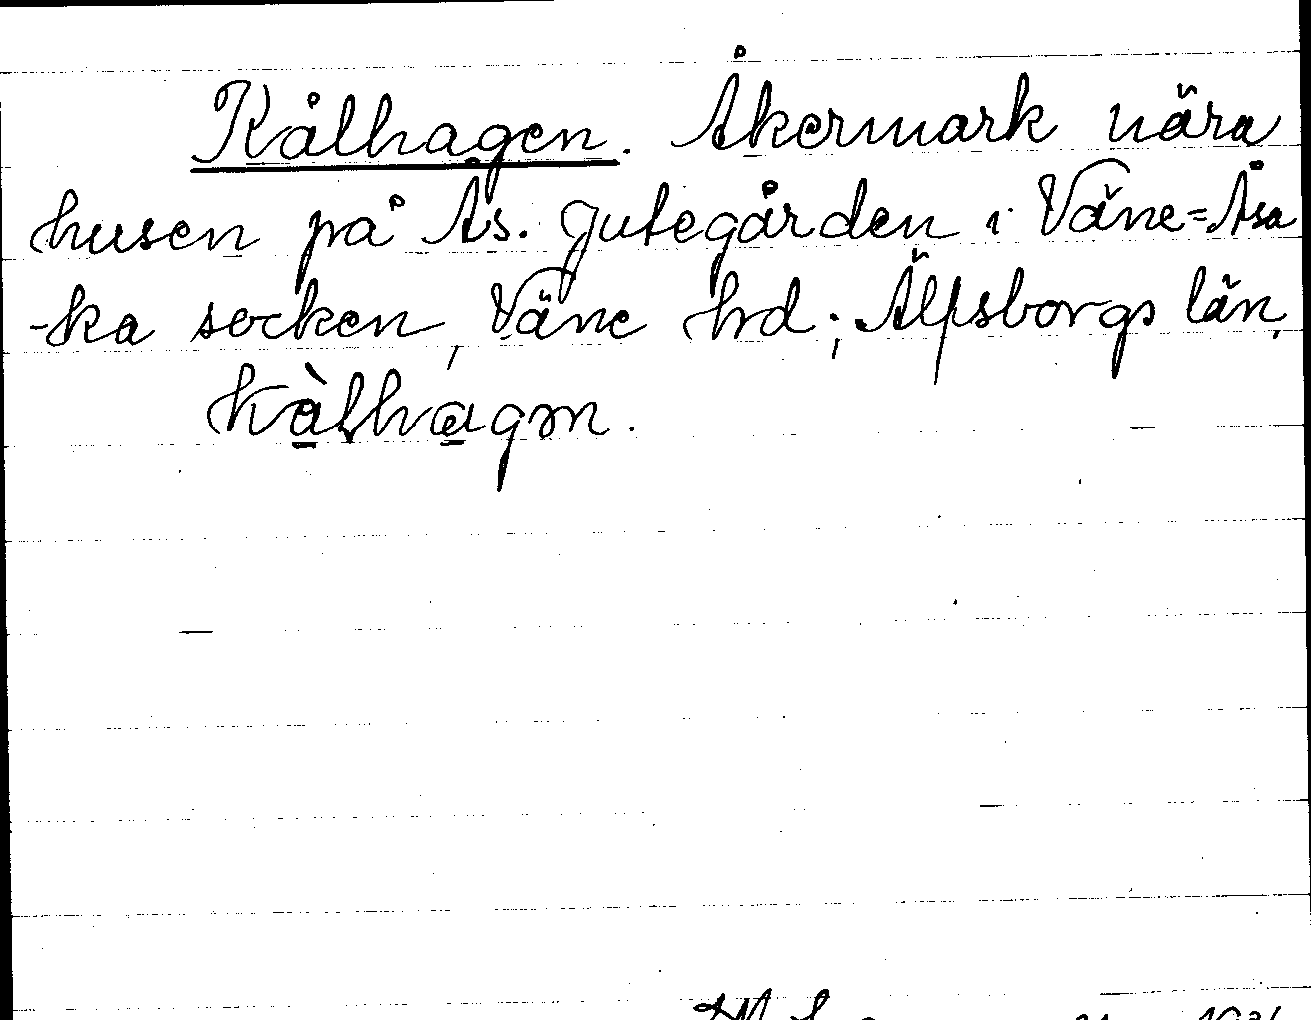 Kålhagen. Åkermark nära
husen på Ås. Jutegården i Väne=Åsa
-ka socken, Väne hrd; Älfsborgs län.
kàlhagən.